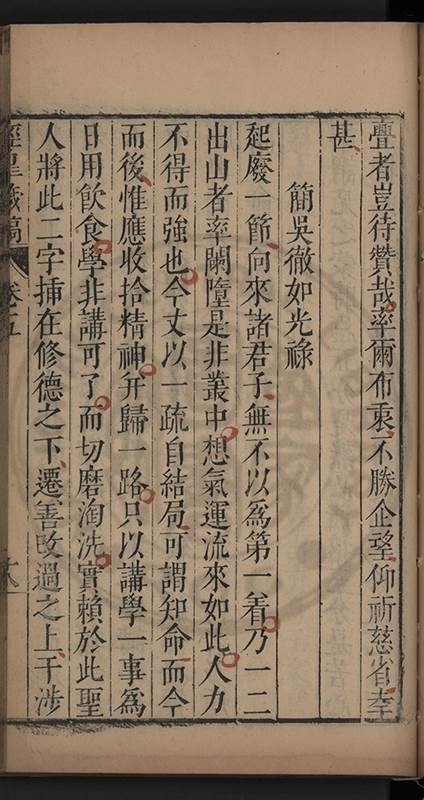 亹者豈待贊哉率爾布褱不勝企望仰祈慈省幸
甚
簡吳徹如光祿
起廢一節向來諸君子無不以爲第一着乃一二
出山者率闌墮是非叢中想氣運流來如此人力
不得而強也今丈以一疏自結局可謂知命而今
而後惟應收拾精神并歸一路只以講學一事爲
日用飲食學非講可了而切磨淘洗實賴於此聖
人將此二字揷在修德之下遷善改過之上干涉
涇臯藏稿 卷五